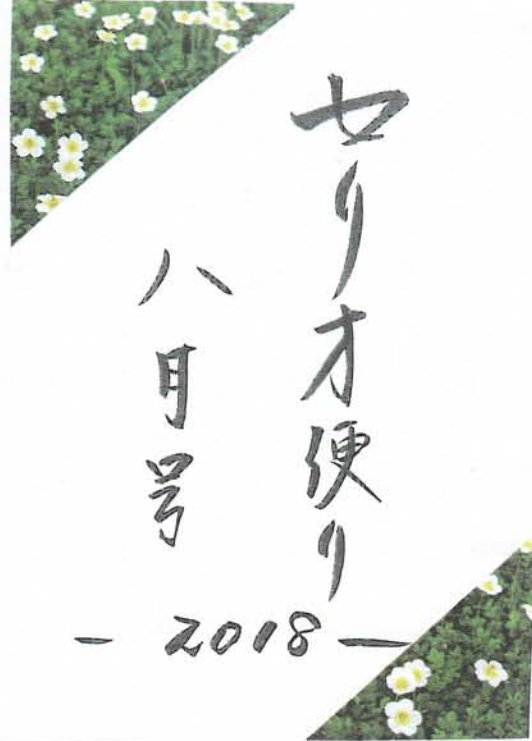 セリオ便り
八月号
- 2018 -